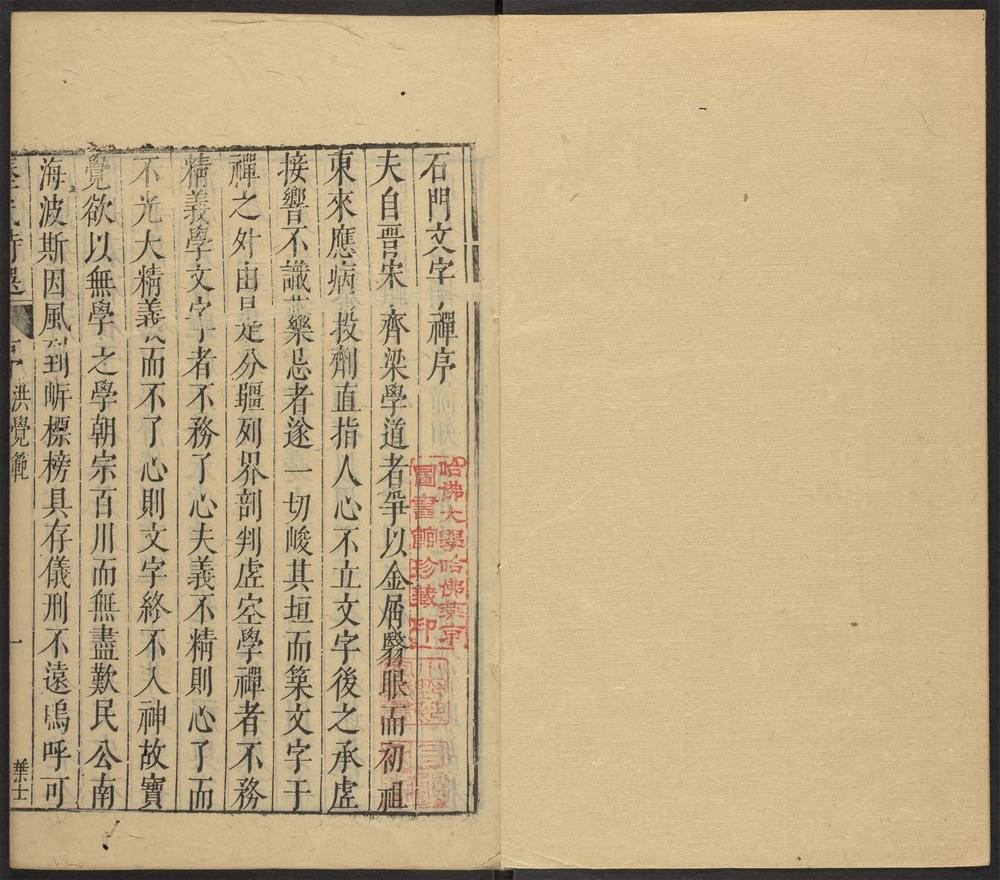 石門文字禪序
夫自晉宋齊梁學道者爭以金屑翳眼而初祖
東來應病投劑直指人心不立文字後之承虛
接響不識藥忌者遂一切峻其垣而築文字于
禪之外由是分疆列界剖判虛空學禪者不務
精義學文字者不務了心夫義不精則心了而
不光大精義而不了心則文字終不入神故寶
覺欲以無學之學朝宗百川而無盡歎民公南
海波斯因風到岍標榜具存儀刑不遠嗚呼可
洪覺範
一
葉士
哈佛大學哈佛燕京
圖書館珍藏印